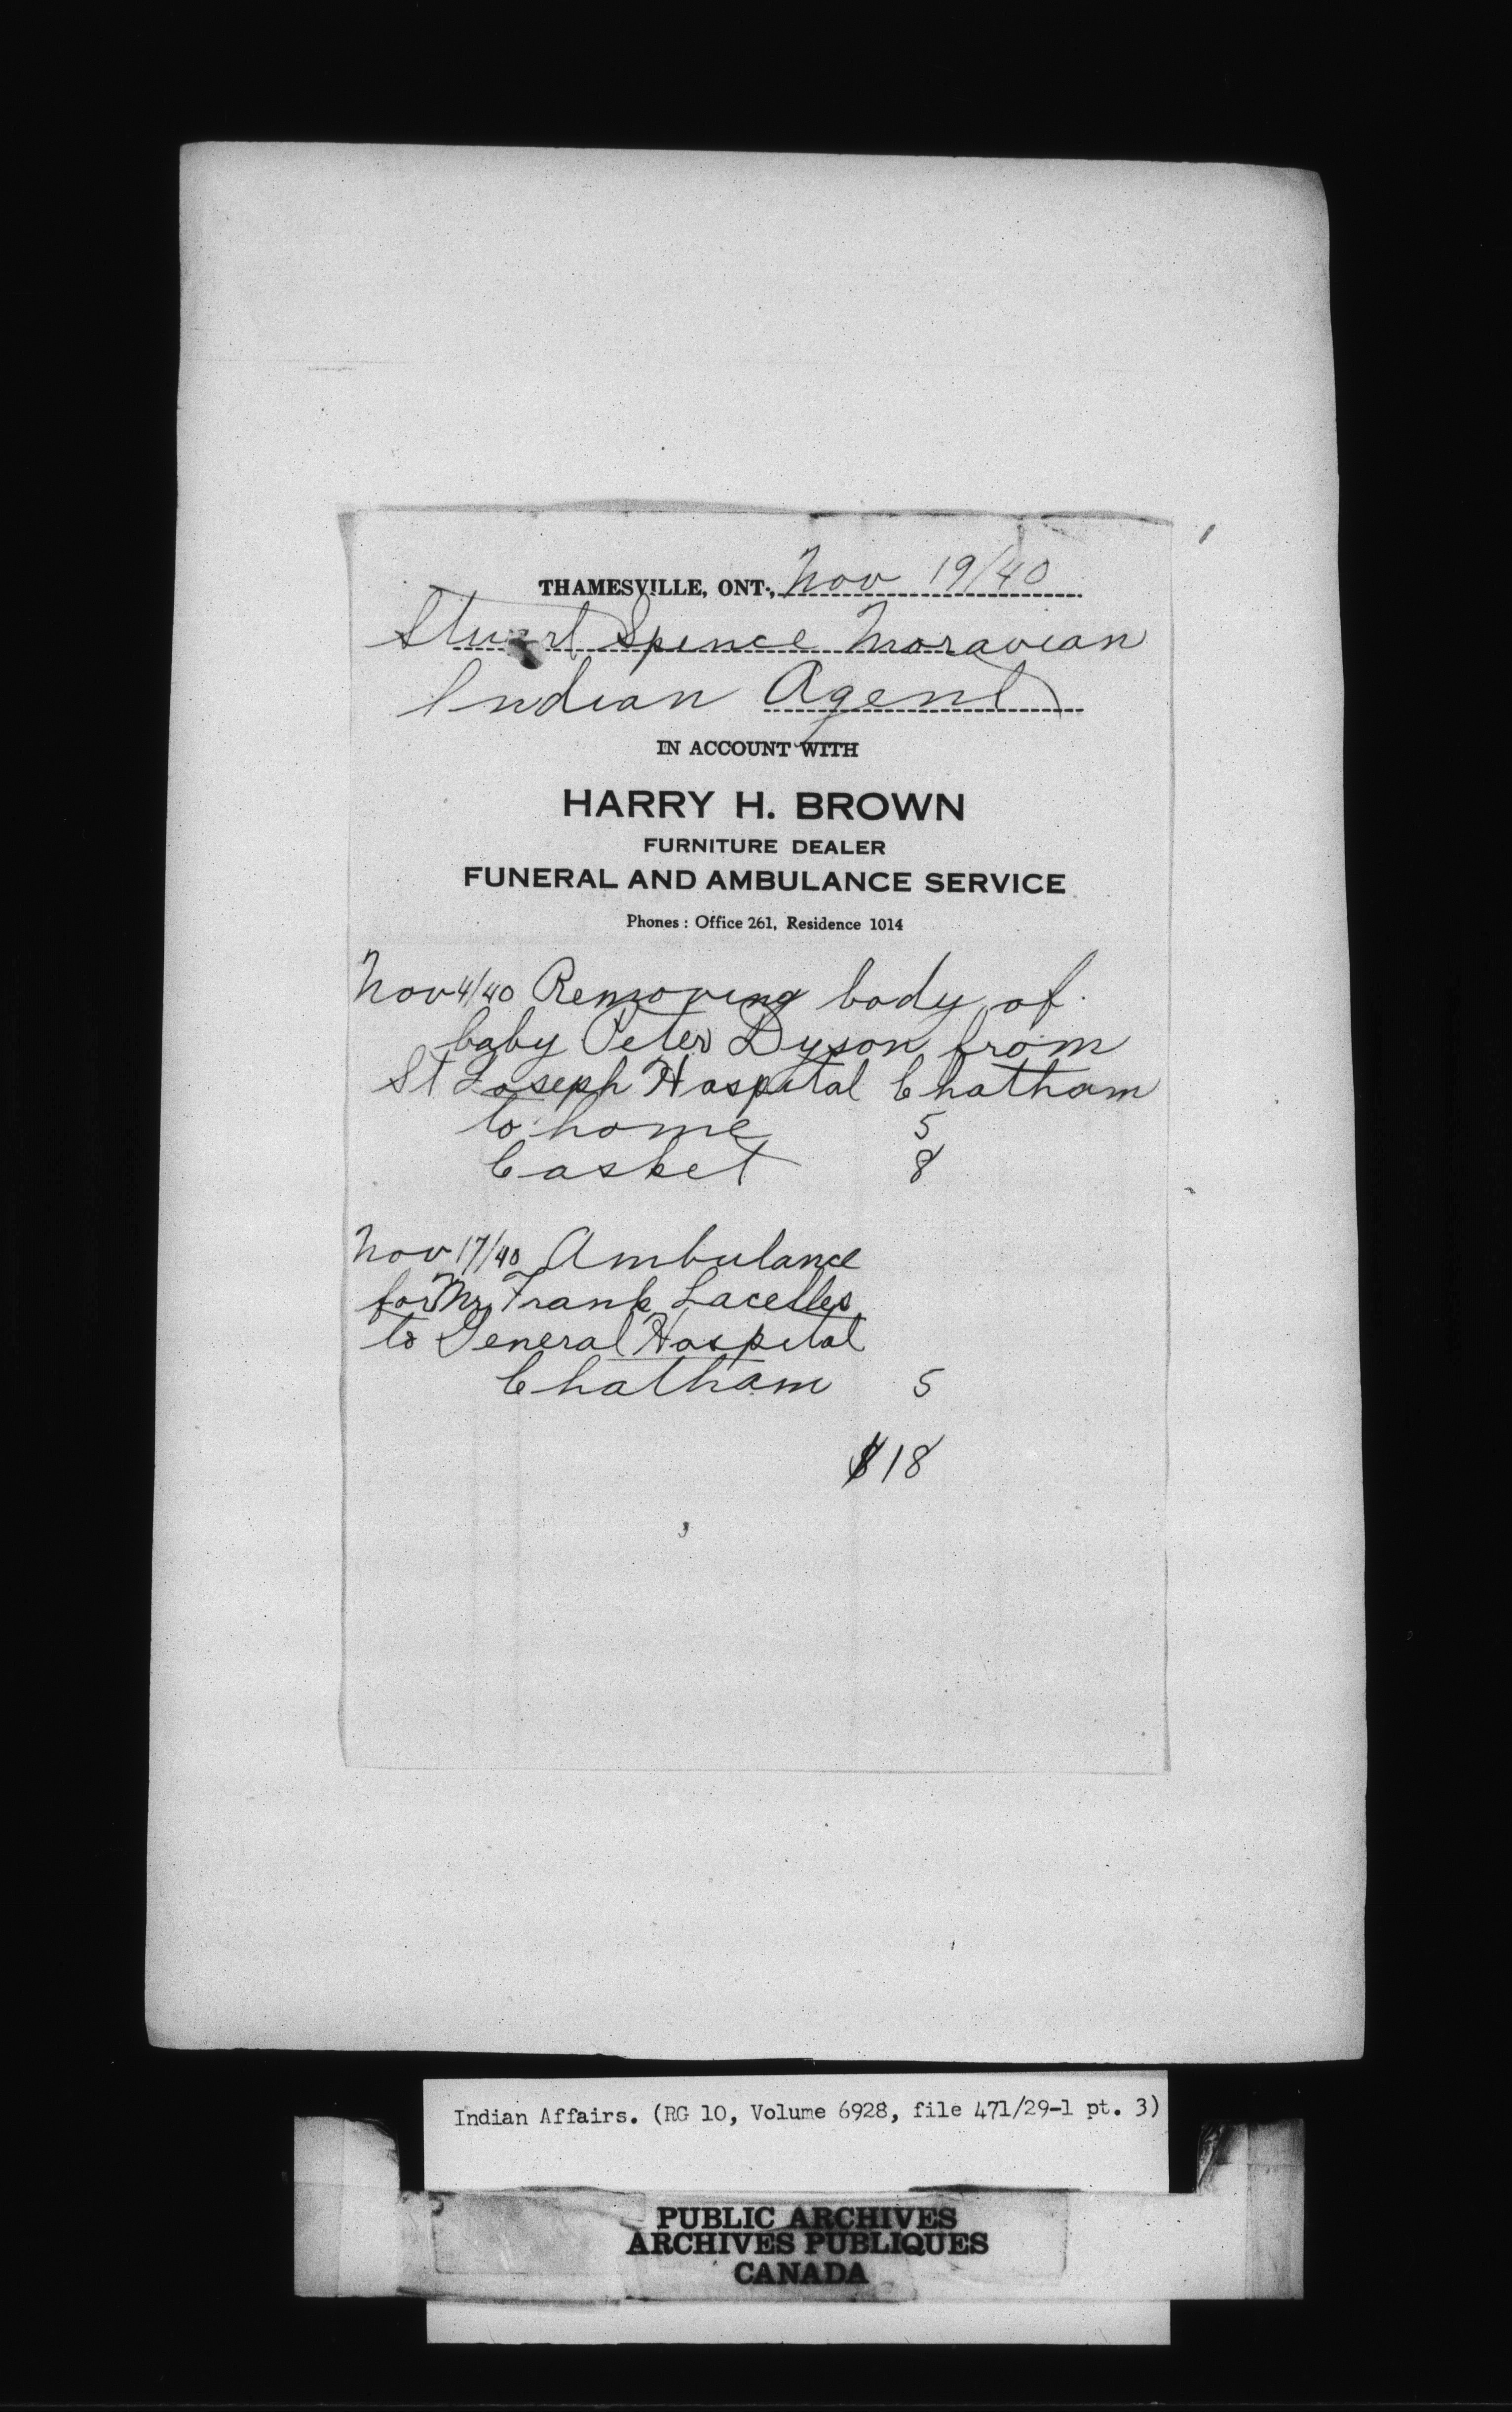 THAMESVILLE, ONT., Nov 19/40
Stuart Spence Moravian
Indian Agent
IN ACCOUNT WITH
HARRY H. BROWN
FURNITURE DEALER
FUNERAL AND AMBULANCE SERVICE
Phones : Office 261, Residence 1014
Nov 4/40 Removing body of
baby Peter Dyson from
St Joseph Hospital Chatham
to home 5
Casket 8
Nov 17/40 Ambulance
for Mr Frank Lacelles
to General Hospital
Chatham 5
$18
Indian Affairs. (RG 10, Volume 6928, file 471/29-1 pt. 3)
PUBLIC ARCHIVES
ARCHIVES PUBLIQUES
CANADA